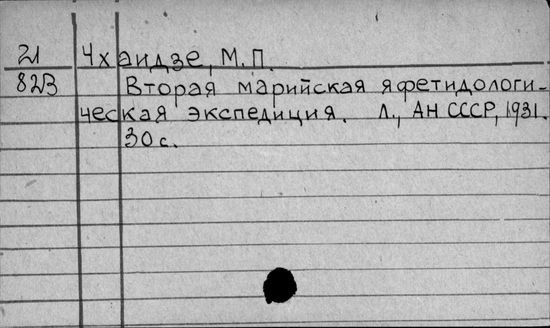 21 Чхаидзе, М.П.
823 Вторая марийская яфетидологи-
ческая экспедиция. Л., АН СССР, 1931.
30 с.